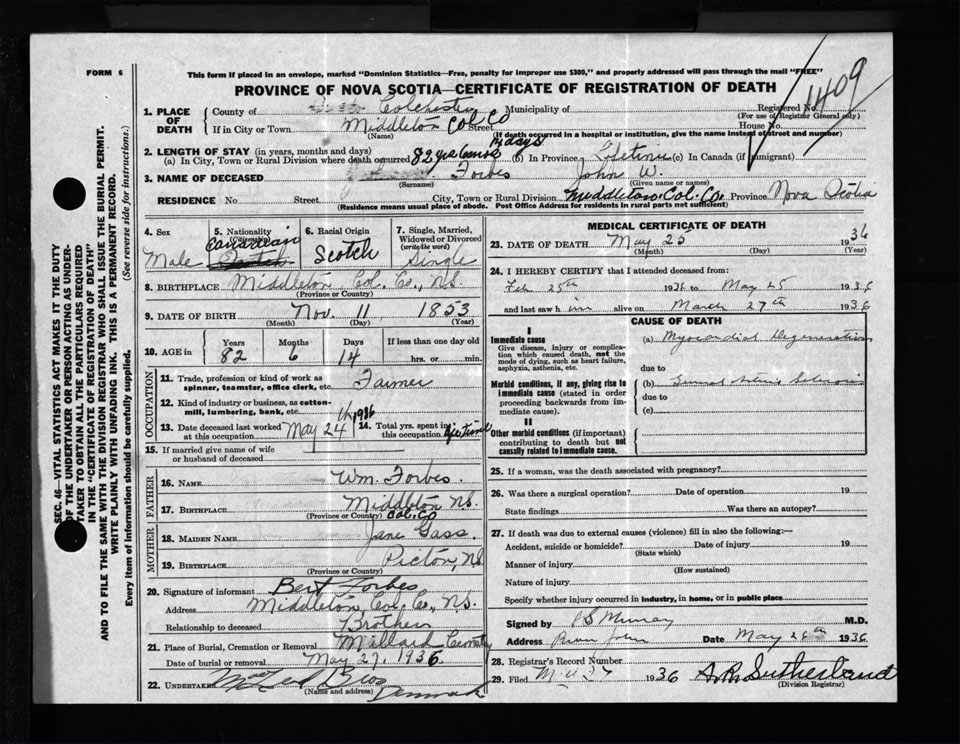 FORM 6
This form if placed in an envelope, marked "Dominion Statistics—Free, penalty for improper use $300," and properly addressed will pass through the mail "FREE"
PROVINCE OF NOVA SCOTIA—CERTIFICATE OF REGISTRATION OF DEATH
1. PLACE OF DEATH County of Colchester Municipality of Registered No. 1409
(For use of Registrar General only)
If in City or Town Middleton Col. Co Street House No.
(Name) (If death occurred in a hospital or institution, give the name instead of street and number)
2. LENGTH OF STAY (in years, months and days) 14 days
(a) In City, Town or Rural Division where death occurred 82 yrs 6 mos (b) In Province Lifetime (c) In Canada (if immigrant)
3. NAME OF DECEASED Forbes John W.
(Surname) (Given name or names)
RESIDENCE No. Street City, Town or Rural Division Middleton Col. Co. Province Nova Scotia
(Residence means usual place of abode. Post Office Address for residents in rural parts not sufficient)
4. Sex Male
5. Nationality (Citizenship) Canadian
6. Racial Origin Scotch
7. Single, Married, Widowed or Divorced (write the word) Single
8. BIRTHPLACE Middleton Col. Co., N.S.
(Province or Country)
9. DATE OF BIRTH Nov. 11 1853
(Month) (Day) (Year)
10. AGE in Years Months Days If less than one day old
82 6 14 hrs. or min.
OCCUPATION
11. Trade, profession or kind of work as spinner, teamster, office clerk, etc. Farmer
12. Kind of industry or business, as cotton-mill, lumbering, bank, etc. "
13. Date deceased last worked at this occupation May 24 1936
14. Total yrs. spent in this occupation lifetime
15. If married give name of wife or husband of deceased
FATHER
16. NAME Wm. Forbes.
17. BIRTHPLACE Middleton N.S.
(Province or Country) Col. Co
MOTHER
18. MAIDEN NAME Jane Gass.
19. BIRTHPLACE Pictou, N.S.
(Province or Country)
20. Signature of informant Bert Forbes
Address Middleton, Col. Co., N.S.
Relationship to deceased Brother
21. Place of Burial, Cremation or Removal Millard Cemetery
Date of burial or removal May 27, 1936
22. UNDERTAKER Bros Denmark
(Name and address)
MEDICAL CERTIFICATE OF DEATH
23. DATE OF DEATH May 25 1936
(Month) (Day) (Year)
24. I HEREBY CERTIFY that I attended deceased from:
Feb. 25th 1936 to May 25 1936
and last saw h im alive on March 27th 1936
CAUSE OF DEATH
I
Immediate cause
Give disease, injury or complication which caused death, not the mode of dying, such as heart failure, asphyxia, asthenia, etc.
(a) Myocardial Degeneration
due to
Morbid conditions, if any, giving rise to immediate cause (stated in order proceeding backwards from immediate cause).
(b) General Arterio Sclerosis
due to
(c)
II
Other morbid conditions (if important) contributing to death but not causally related to immediate cause.
25. If a woman, was the death associated with pregnancy?
26. Was there a surgical operation? Date of operation 19
State findings Was there an autopsy?
27. If death was due to external causes (violence) fill in also the following:—
Accident, suicide or homicide? Date of injury 19
(State which)
Manner of injury
(How sustained)
Nature of injury
Specify whether injury occurred in industry, in home, or in public place
Signed by Murray M.D.
Address River John Date May 26th 1936
28. Registrar's Record Number
29. Filed 1936 Sutherland
(Division Registrar)
SEC. 46—VITAL STATISTICS ACT MAKES IT THE DUTY
OF THE UNDERTAKER OR PERSON ACTING AS UNDER-
TAKER TO OBTAIN ALL THE PARTICULARS REQUIRED
IN THE "CERTIFICATE OF REGISTRATION OF DEATH"
AND TO FILE THE SAME WITH THE DIVISION REGISTRAR WHO SHALL ISSUE THE BURIAL PERMIT.
WRITE PLAINLY WITH UNFADING INK. THIS IS A PERMANENT RECORD.
Every item of Information should be carefully supplied. (See reverse side for instructions.)